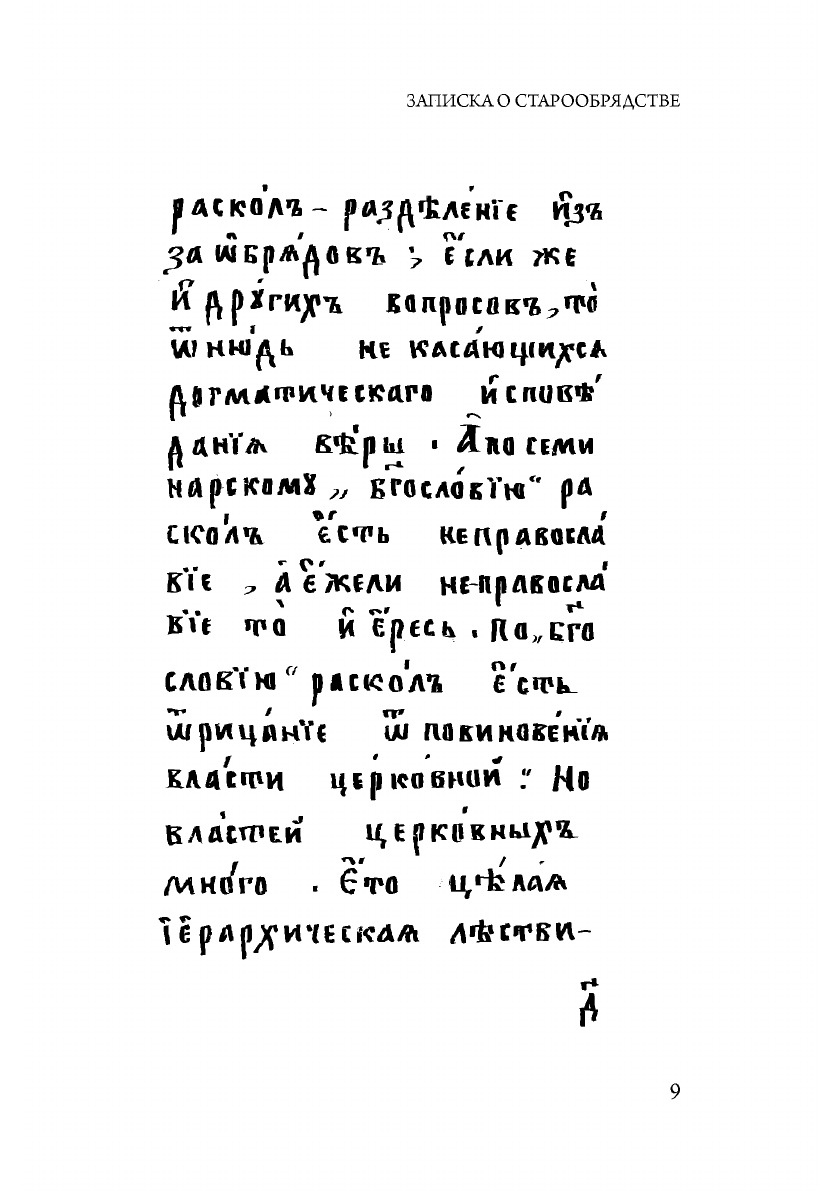 ЗАПИСКА О СТАРООБРЯДСТВЕ
раско́лъ – раздѣле́нїе и҆́зъ
за ѡ҆бря́довъ ; є҆́сли же
и҆ дрꙋги́хъ вопросовъ, то̀
ѿню́дь не каса́ющихсѧ
догматическаго и҆сповѣ́
данїѧ вѣ́ры . А҆ по семи
нарскомꙋ „ бг҃осло́вїю“ ра
ско́лъ є҆́сть неправосла́
вїе , а҆ є҆́жели не-правосла́
вїе то̀ и҆ є҆́ресь . По „бг҃о
словїю“ раско́лъ є҆́сть
ѿрица́нїе ѿ повинове́нїѧ
вла́сти церко́вной." Но
власте́й церко́вныхъ
мно́го . Є҆́то цѣ́лаѧ
і҆є҆рархи́ческаѧ лѣстви–
д҃
9